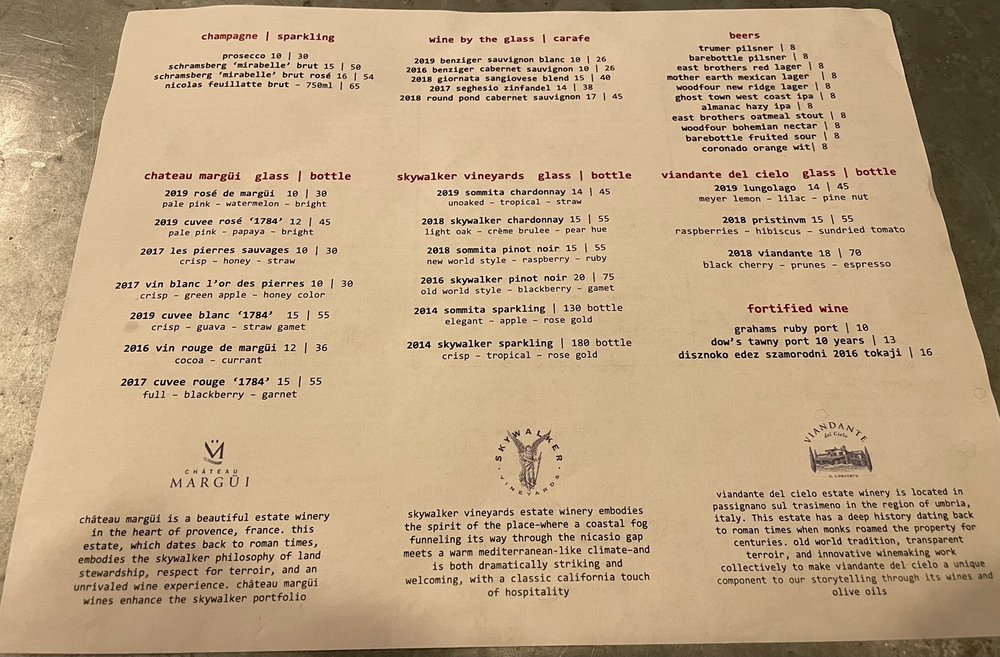 champagne | sparkling
prosecco 10 | 30
schramsberg ‘mirabelle’ brut 15 | 50
schramsberg ‘mirabelle’ brut rosé 16 | 54
nicolas feuillatte brut – 750ml | 65
wine by the glass | carafe
2019 benziger sauvignon blanc 10 | 26
2016 benziger cabernet sauvignon 10 | 26
2018 giornata sangiovese blend 15 | 40
2017 seghesio zinfandel 14 | 38
2018 round pond cabernet sauvignon 17 | 45
beers
trumer pilsner | 8
barebottle pilsner | 8
east brothers red lager | 8
mother earth mexican lager | 8
woodfour new ridge lager | 8
ghost town west coast ipa | 8
almanac hazy ipa | 8
east brothers oatmeal stout | 8
woodfour bohemian nectar | 8
barebottle fruited sour | 8
coronado orange wit| 8
chateau margüi glass | bottle
2019 rosé de margüi 10 | 30
pale pink – watermelon – bright
2019 cuvee rosé ‘1784’ 12 | 45
pale pink – papaya – bright
2017 les pierres sauvages 10 | 30
crisp – honey – straw
2017 vin blanc l’or des pierres 10 | 30
crisp – green apple – honey color
2019 cuvee blanc ‘1784’ 15 | 55
crisp – guava – straw gamet
2016 vin rouge de margüi 12 | 36
cocoa – currant
2017 cuvee rouge ‘1784’ 15 | 55
full – blackberry – garnet
skywalker vineyards glass | bottle
2019 sommita chardonnay 14 | 45
unoaked – tropical – straw
2018 skywalker chardonnay 15 | 55
light oak – crème brulee – pear hue
2018 sommita pinot noir 15 | 55
new world style – raspberry – ruby
2016 skywalker pinot noir 20 | 75
old world style – blackberry – gamet
2014 sommita sparkling | 130 bottle
elegant – apple – rose gold
2014 skywalker sparkling | 180 bottle
crisp – tropical – rose gold
viandante del cielo glass | bottle
2019 lungolago 14 | 45
meyer lemon – lilac – pine nut
2018 pristinvm 15 | 55
raspberries – hibiscus – sundried tomato
2018 viandante 18 | 70
black cherry – prunes – espresso
fortified wine
grahams ruby port | 10
dow’s tawny port 10 years | 13
disznoko edez szamorodni 2016 tokaji | 16
CHÂTEAU
MARGÜI
château margüi is a beautiful estate winery
in the heart of provence, france. this
estate, which dates back to roman times,
embodies the skywalker philosophy of land
stewardship, respect for terroir, and an
unrivaled wine experience. château margüi
wines enhance the skywalker portfolio
SKYWALKER
VINEYARDS
skywalker vineyards estate winery embodies
the spirit of the place–where a coastal fog
funneling its way through the nicasio gap
meets a warm mediterranean-like climate–and
is both dramatically striking and
welcoming, with a classic california touch
of hospitality
VIANDANTE
del Cielo
IL CONVENTO
viandante del cielo estate winery is located in
passignano sul trasimeno in the region of umbria,
italy. This estate has a deep history dating back
to roman times when monks roamed the property for
centuries. old world tradition, transparent
terroir, and innovative winemaking work
collectively to make viandante del cielo a unique
component to our storytelling through its wines and
olive oils